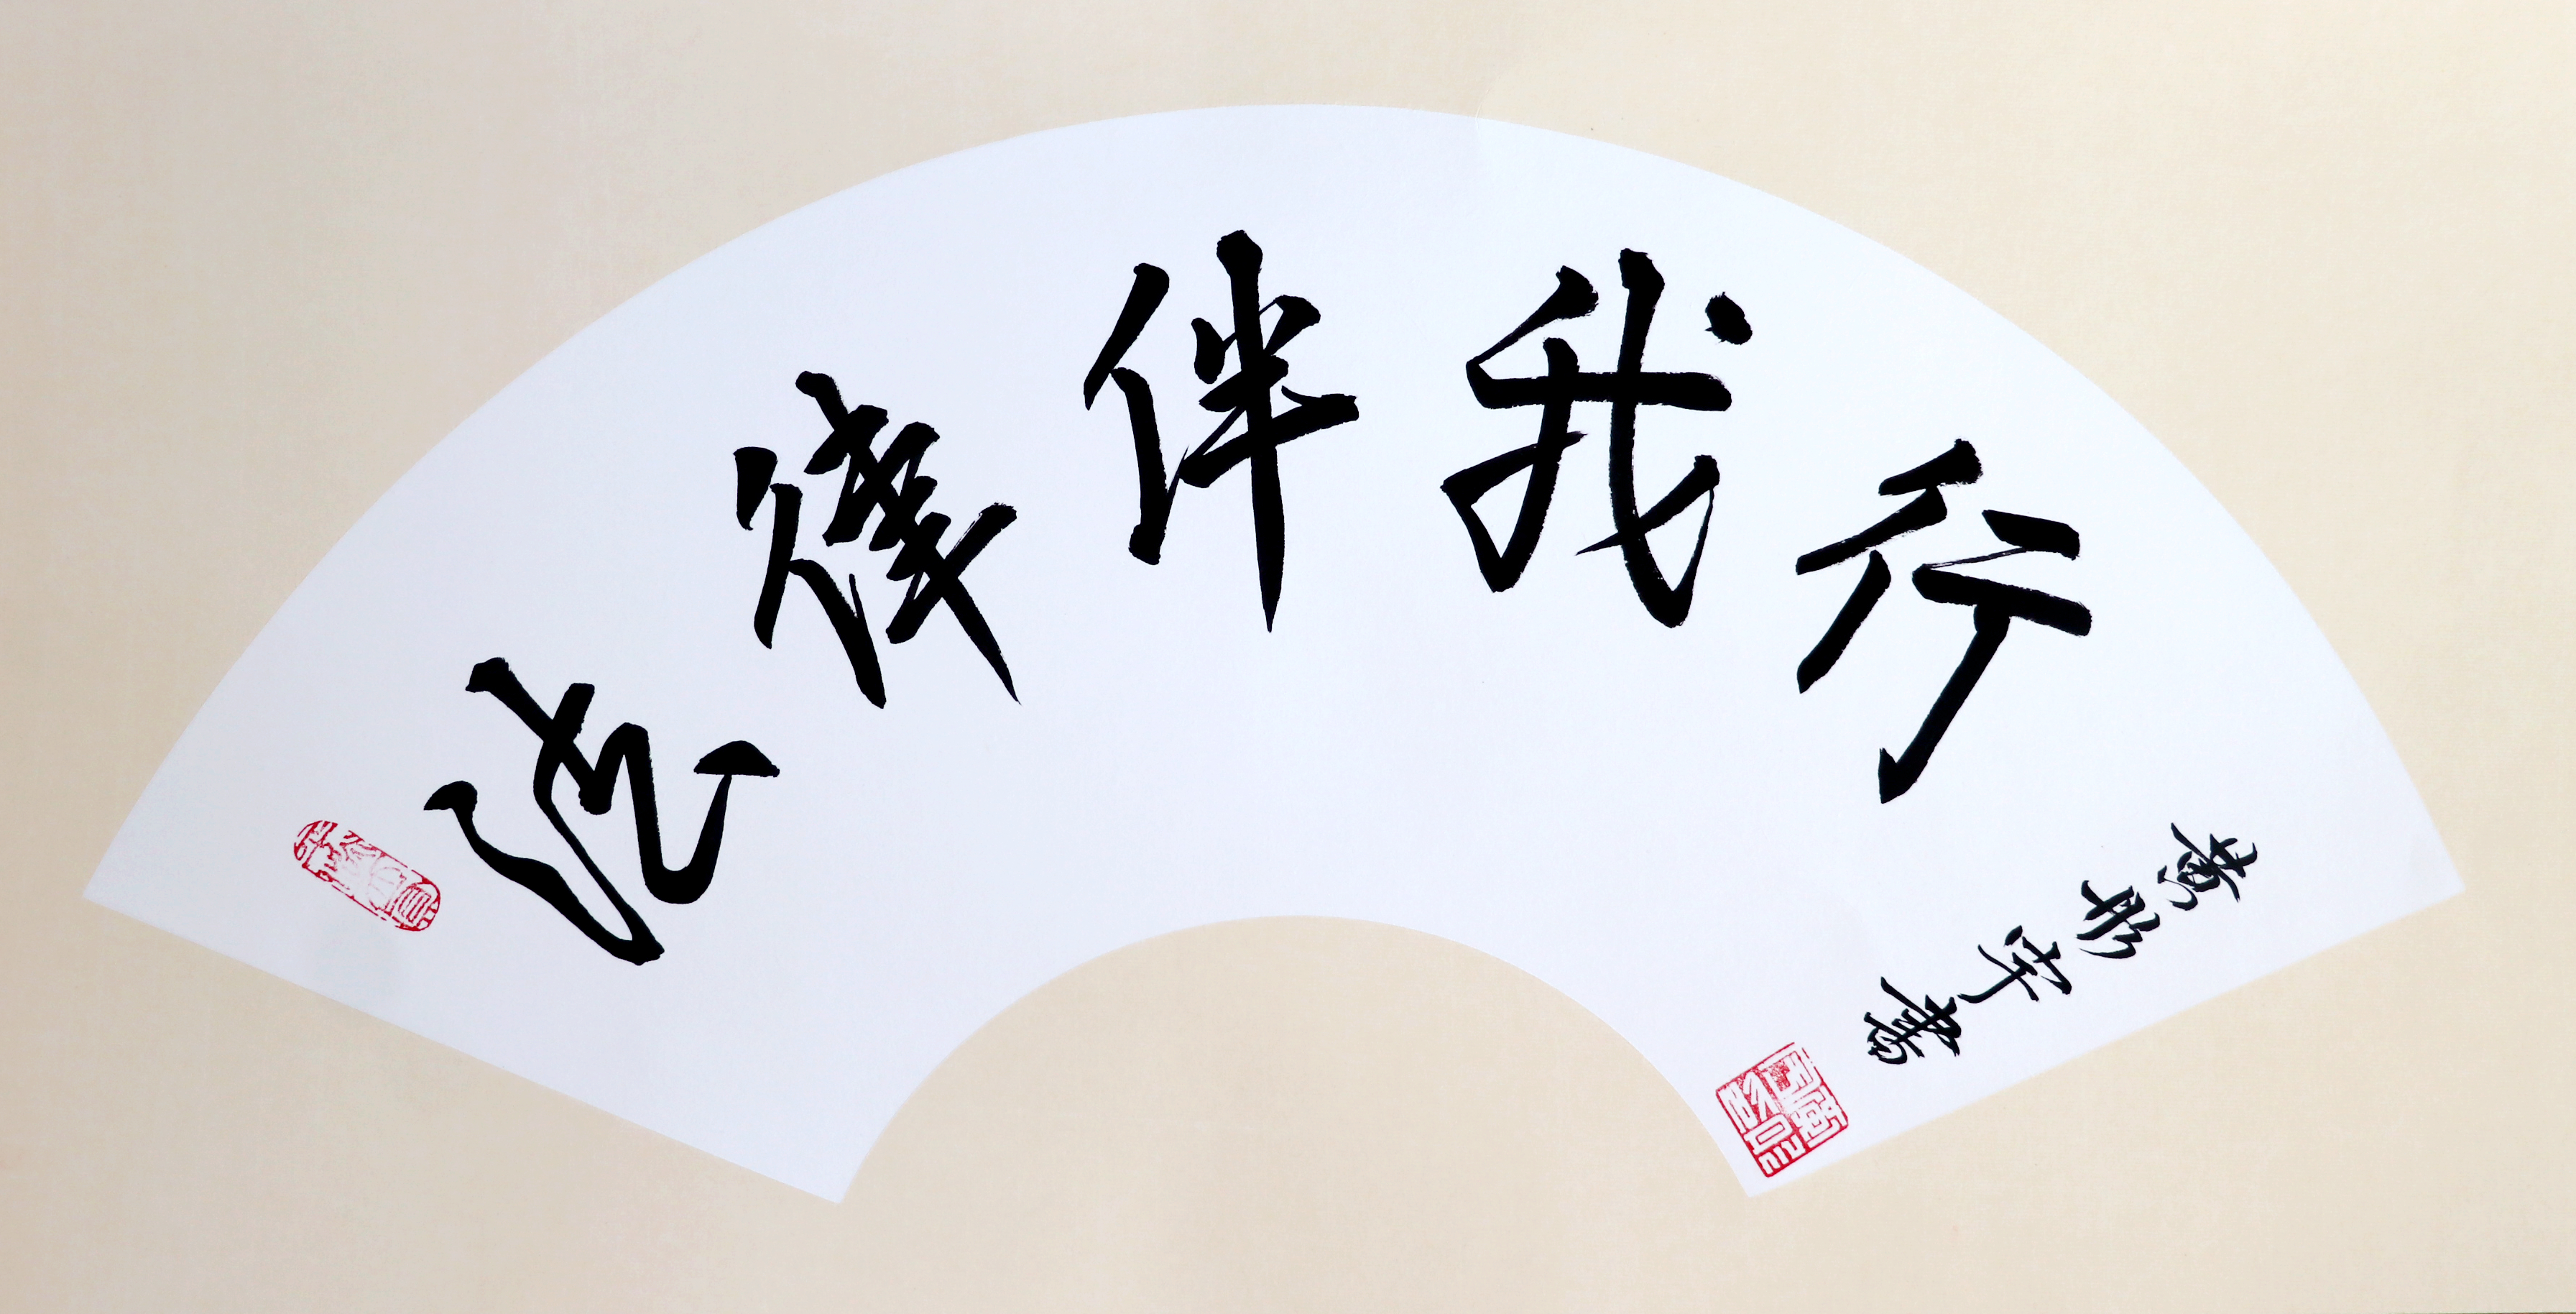 法律伴我行
黄彤宇書